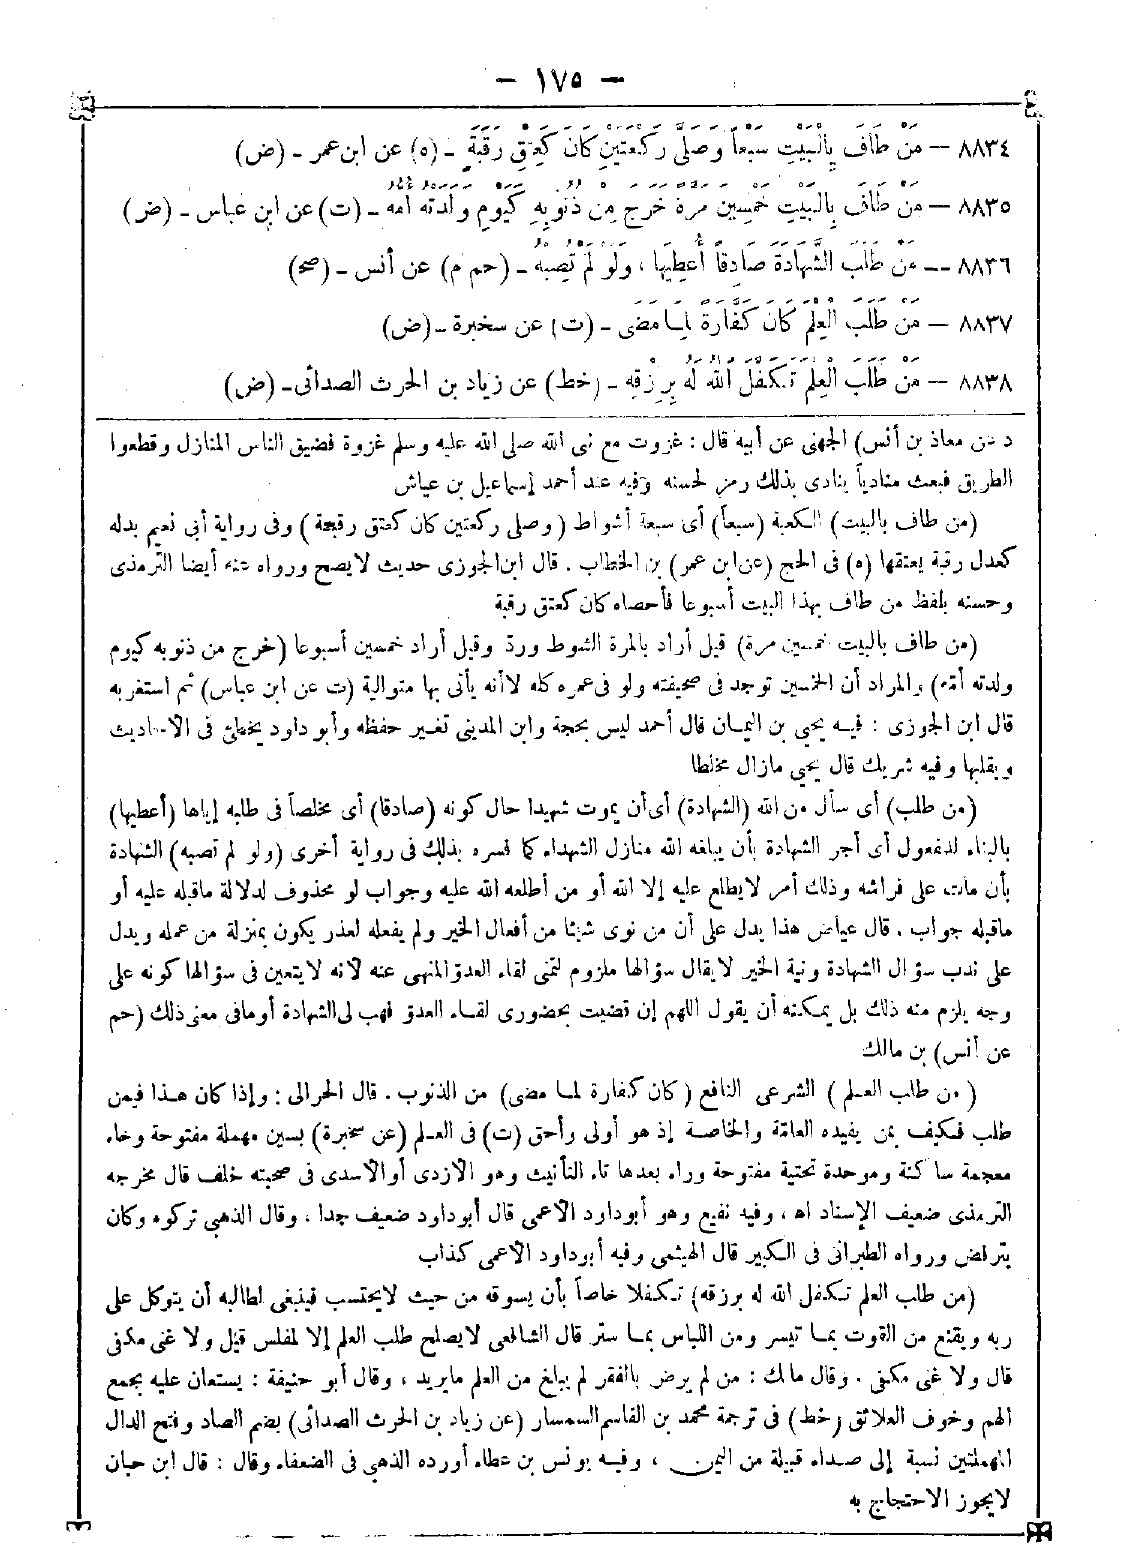 — ١٧٥ —
٨٨٣٤ — مَنْ طَافَ بِالْبَيْتِ سَبْعاً وَصَلَّى رَكْعَتَيْنِ كَانَ كَعِتْقِ رَقَبَةٍ - (ه) عن ابن عمر - (ض)
٨٨٣٥ — مَنْ طَافَ بِالْبَيْتِ خَمْسِينَ مَرَّةً خَرَجَ مِنْ ذُنُوبِهِ كَيَوْمِ وَلَدَتْهُ أُمُّهُ - (ت) عن ابن عباس - (ض)
٨٨٣٦ — مَنْ طَلَبَ الشَّهَادَةَ صَادِقاً أُعْطِيَهَا ، وَلَوْ لَمْ تُصِبْهُ - (حم م) عن أنس - (صح)
٨٨٣٧ — مَنْ طَلَبَ الْعِلْمَ كَانَ كَفَّارَةً لِمَا مَضَى - (ت) عن سخبرة - (ض)
٨٨٣٨ — مَنْ طَلَبَ الْعِلْمَ تَكَفَّلَ اللّٰهُ لَهُ بِرِزْقِهِ - (خط) عن زياد بن الحرث الصدائى - (ض)
د عن معاذ بن أنس) الجهنى عن أبيه قال : غزوت مع نبى الله صلى الله عليه وسلم غزوة فضيق الناس المنازل وقطعوا
الطريق فبعث منادياً ينادى بذلك رمز لحسنه وفيه عند أحمد إسماعيل بن عياش
(من طاف بالبيت) الكعبة (سبعاً) أى سبعة أشواط (وصلى ركعتين كان كعتق رقبة) وفى رواية أبى نعيم بدله
كعدل رقبة يعتقها (ه) فى الحج (عن ابن عمر) بن الخطاب . قال ابن الجوزى حديث لا يصح ورواه عنه أيضا الترمذى
وحسنه بلفظ من طاف بهذا البيت أسبوعا فأحصاه كان كعتق رقبة
(من طاف بالبيت خمسين مرة) قيل أراد بالمرة الشوط ورد وقيل أراد خمسين أسبوعا (خرج من ذنوبه كيوم
ولدته أمه) والمراد أن الخمسين توجد فى صحيفته ولو فى عمره كله لا أنه يأتى بها متوالية (ت عن ابن عباس) ثم استغربه
قال ابن الجوزى : فيه يحيي بن اليمان قال أحمد ليس بحجة وابن المدينى تغير حفظه وأبو داود يخطئ فى الأحاديث
ويقلبها وفيه شريك قال يحيي مازال مخلطا
(من طلب) أى سأل من الله (الشهادة) أى أن يموت شهيدا حال كونه (صادقا) أى مخلصاً فى طلبه إياها (أعطيها)
بالبناء للمفعول أى أجر الشهادة بأن يبلغه الله منازل الشهداء كما فسره بذلك فى رواية أخرى (ولو لم تصبه) الشهادة
بأن مات على فراشه وذلك أمر لا يطلع عليه إلا الله أو من أطلعه الله عليه وجواب لو محذوف لدلالة ماقبله عليه أو
ماقبله جواب . قال عياض هذا يدل على أن من نوى شيئا من أفعال الخير ولم يفعله لعذر يكون بمنزلة من عمله ويدل
على ندب سؤال الشهادة ونية الخير لا يقال سؤالها ملزوم لتمنى لقاء العدو المنهى عنه لأنه لا يتعين فى سؤالها كونه على
وجه يلزم منه ذلك بل يمكنه أن يقول اللهم إن قضيت بحضورى لقاء العدو فهب لى الشهادة أو مافى معنى ذلك (حم
عن أنس) بن مالك
(من طلب العلم) الشرعى النافع (كان كفارة لما مضى) من الذنوب . قال الحرالى : وإذا كان هذا فيمن
طلب فكيف بمن يفيده العامة والخاصة إذ هو أولى وأحق (ت) فى العلم (عن سخبرة) بسين مهملة مفتوحة وخاء
معجمة ساكنة وموحدة تحتية مفتوحة وراء بعدها تاء التأنيث وهو الأزدى أو الأسدى فى صحبته خلف قال مخرجه
الترمذى ضعيف الإسناد اه ، وفيه نفيع وهو أبو داود الأعمى قال أبو داود ضعيف جدا ، وقال الذهبى تركوه وكان
يترفض ورواه الطبرانى فى الكبير قال الهيثمى وفيه أبو داود الأعمى كذاب
(من طلب العلم تكفل الله له برزقه) تكفلا خاصاً بأن يسوقه من حيث لا يحتسب فينبغى لطالبه أن يتوكل على
ربه ويقنع من القوت بما تيسر ومن اللباس بما ستر قال الشافعى لا يصلح طلب العلم إلا لمفلس قيل ولا غنى مكفى
قال ولا غنى مكفى . وقال مالك : من لم يرض بالفقر لم يبلغ من العلم مايريد ، وقال أبو حنيفة : يستعان عليه بجمع
الهم وخوف العلائق (خط) فى ترجمة محمد بن القاسم السمسار (عن زياد بن الحرث الصدائى) بضم الصاد وفتح الدال
المهملتين نسبة إلى صداء قبيلة من اليمن ، وفيه يونس بن عطاء أورده الذهبى فى الضعفاء وقال : قال ابن حبان
لا يجوز الاحتجاج به